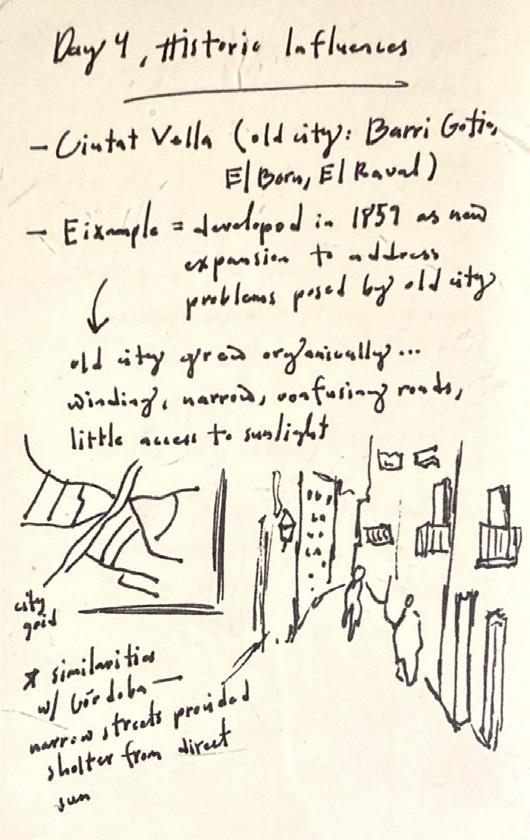 Day 4, Historic Influences
- Ciutat Vella (old city: Barri Gotic,
El Born, El Raval)
- Eixample = developed in 1859 as new
expansion to address
problems posed by old city
old city grew organically...
winding, narrow, confusing roads,
little access to sunlight
city
grid
* similarities
w/ Córdoba —
narrow streets provided
shelter from direct
sun